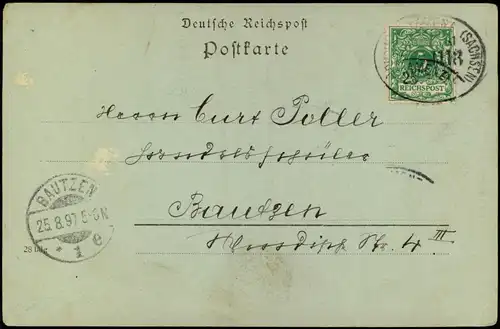 Deutsche Reichspost
Postkarte
(SACHSEN)
113
REICHSPOST
Herrn Curt Poller
Bautzen
Str. 4 III
BAUTZEN
25.8.97.5-6N
* 1 e